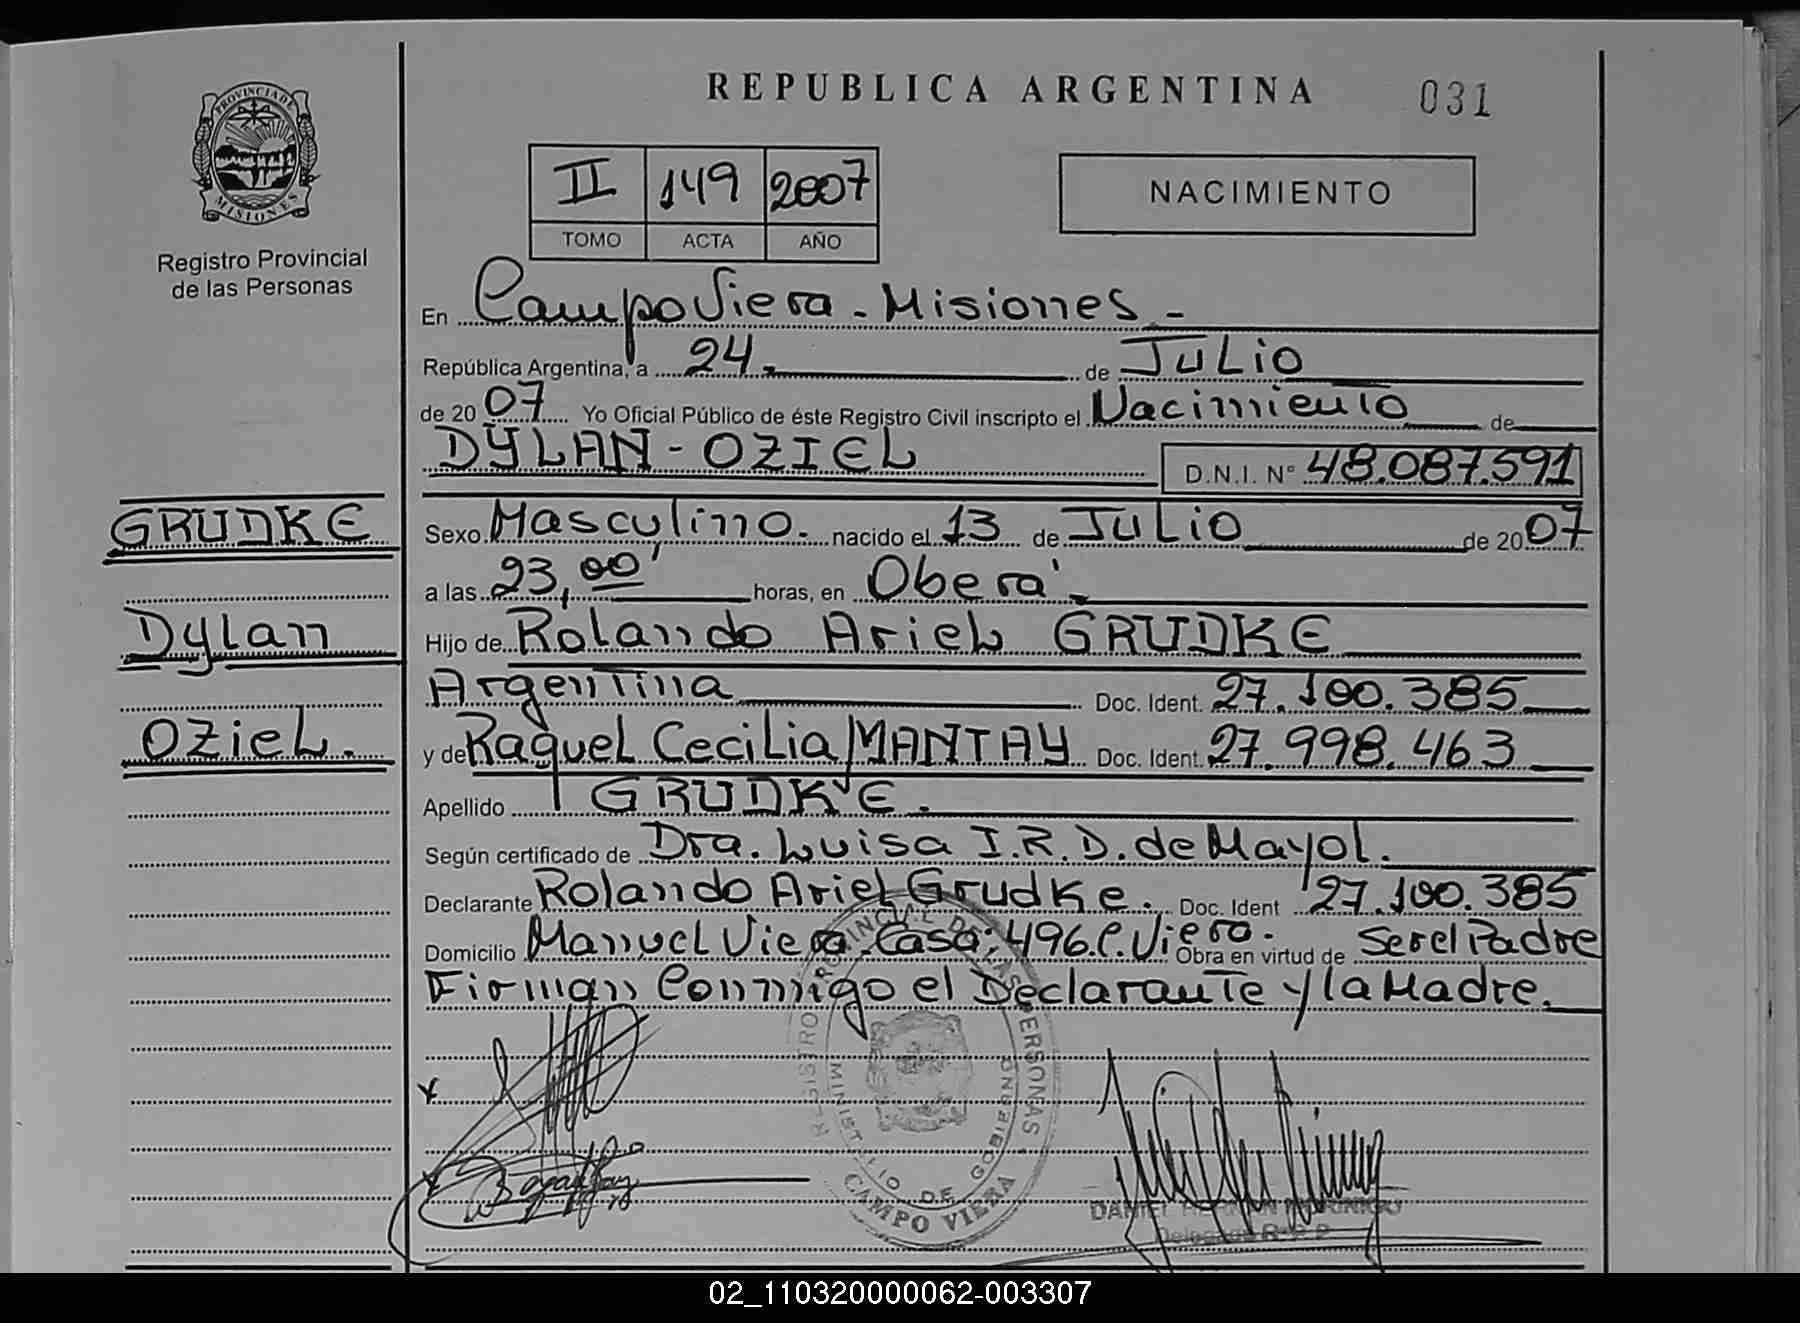 REPUBLICA ARGENTINA
031
PROVINCIA DE
MISIONES
Registro Provincial
de las Personas
II 149 2007
TOMO ACTA AÑO
NACIMIENTO
En Campo Viera - Misiones -
República Argentina, a 24 de JULIO
de 20 07 Yo Oficial Público de éste Registro Civil inscripto el Nacimiento de
DYLAN - OZIEL D.N.I. N° 48.087.591
GRUDKE
Dylan
OZieL.
Sexo Masculino. nacido el 13 de JULIO de 20 07
a las 23,00' horas, en Oberá
Hijo de Rolando Ariel GRUDKE
Argentina Doc. Ident. 27.100.385
y de Raquel Cecilia MANTAY Doc. Ident. 27.998.463
Apellido GRUDKE.
Según certificado de Dra. Luisa I.R.D. de Mayol.
Declarante Rolando Ariel Grudke. Doc. Ident 27.100.385
Domicilio Manuel Viera. Casa: 496. C. Viera. Obra en virtud de Ser el Padre
Firman Conmigo el Declarante y la Madre.
REGISTRO PROVINCIAL DE LAS PERSONAS
MINISTERIO DE GOBIERNO
CAMPO VIERA
DANIEL
02_110320000062-003307